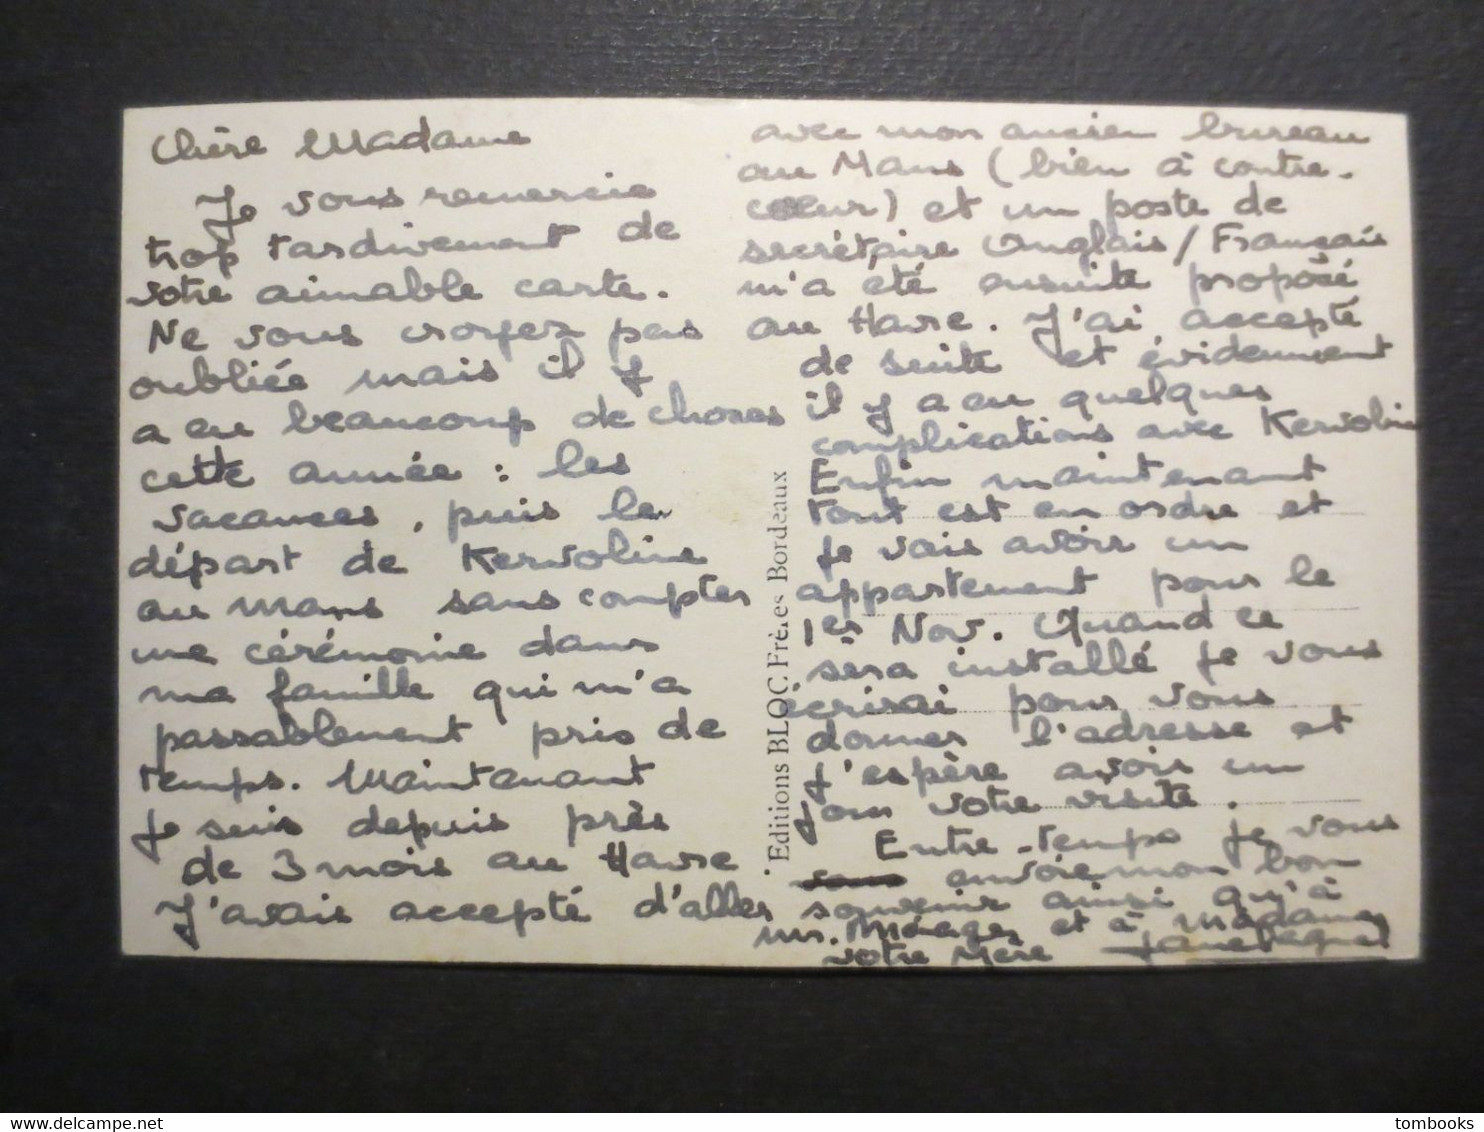 Chère Madame
Je vous remercie
trop tardivement de
votre aimable carte.
Ne vous croyez pas
oubliée mais il y
a eu beaucoup de choses
cette année : les
vacances, puis le
départ de Kervoline
au Mans sans compter
une cérémonie dans
ma famille qui m'a
passablement pris de
temps. Maintenant
je suis depuis près
de 3 mois au Havre
J'avais accepté d'aller
avec mon ancien bureau
au Mans (bien à contre-
cœur) et un poste de
secrétaire Anglais/Français
m'a été ensuite proposé
au Havre. J'ai accepté
de suite et évidemment
il y a eu quelques
complications avec Kervoline
Enfin maintenant
tout est en ordre et
je vais avoir un
appartement pour le
1er Nov. Quand ce
sera installé je vous
écrirai pour vous
donner l'adresse et
j'espère avoir un
jour votre visite.
Entre-temps je vous
envoie mon bon
souvenir ainsi qu'à
Mr. Ménager et à Madame
votre Mère
Editions BLOC Frères Bordeaux
tombooks